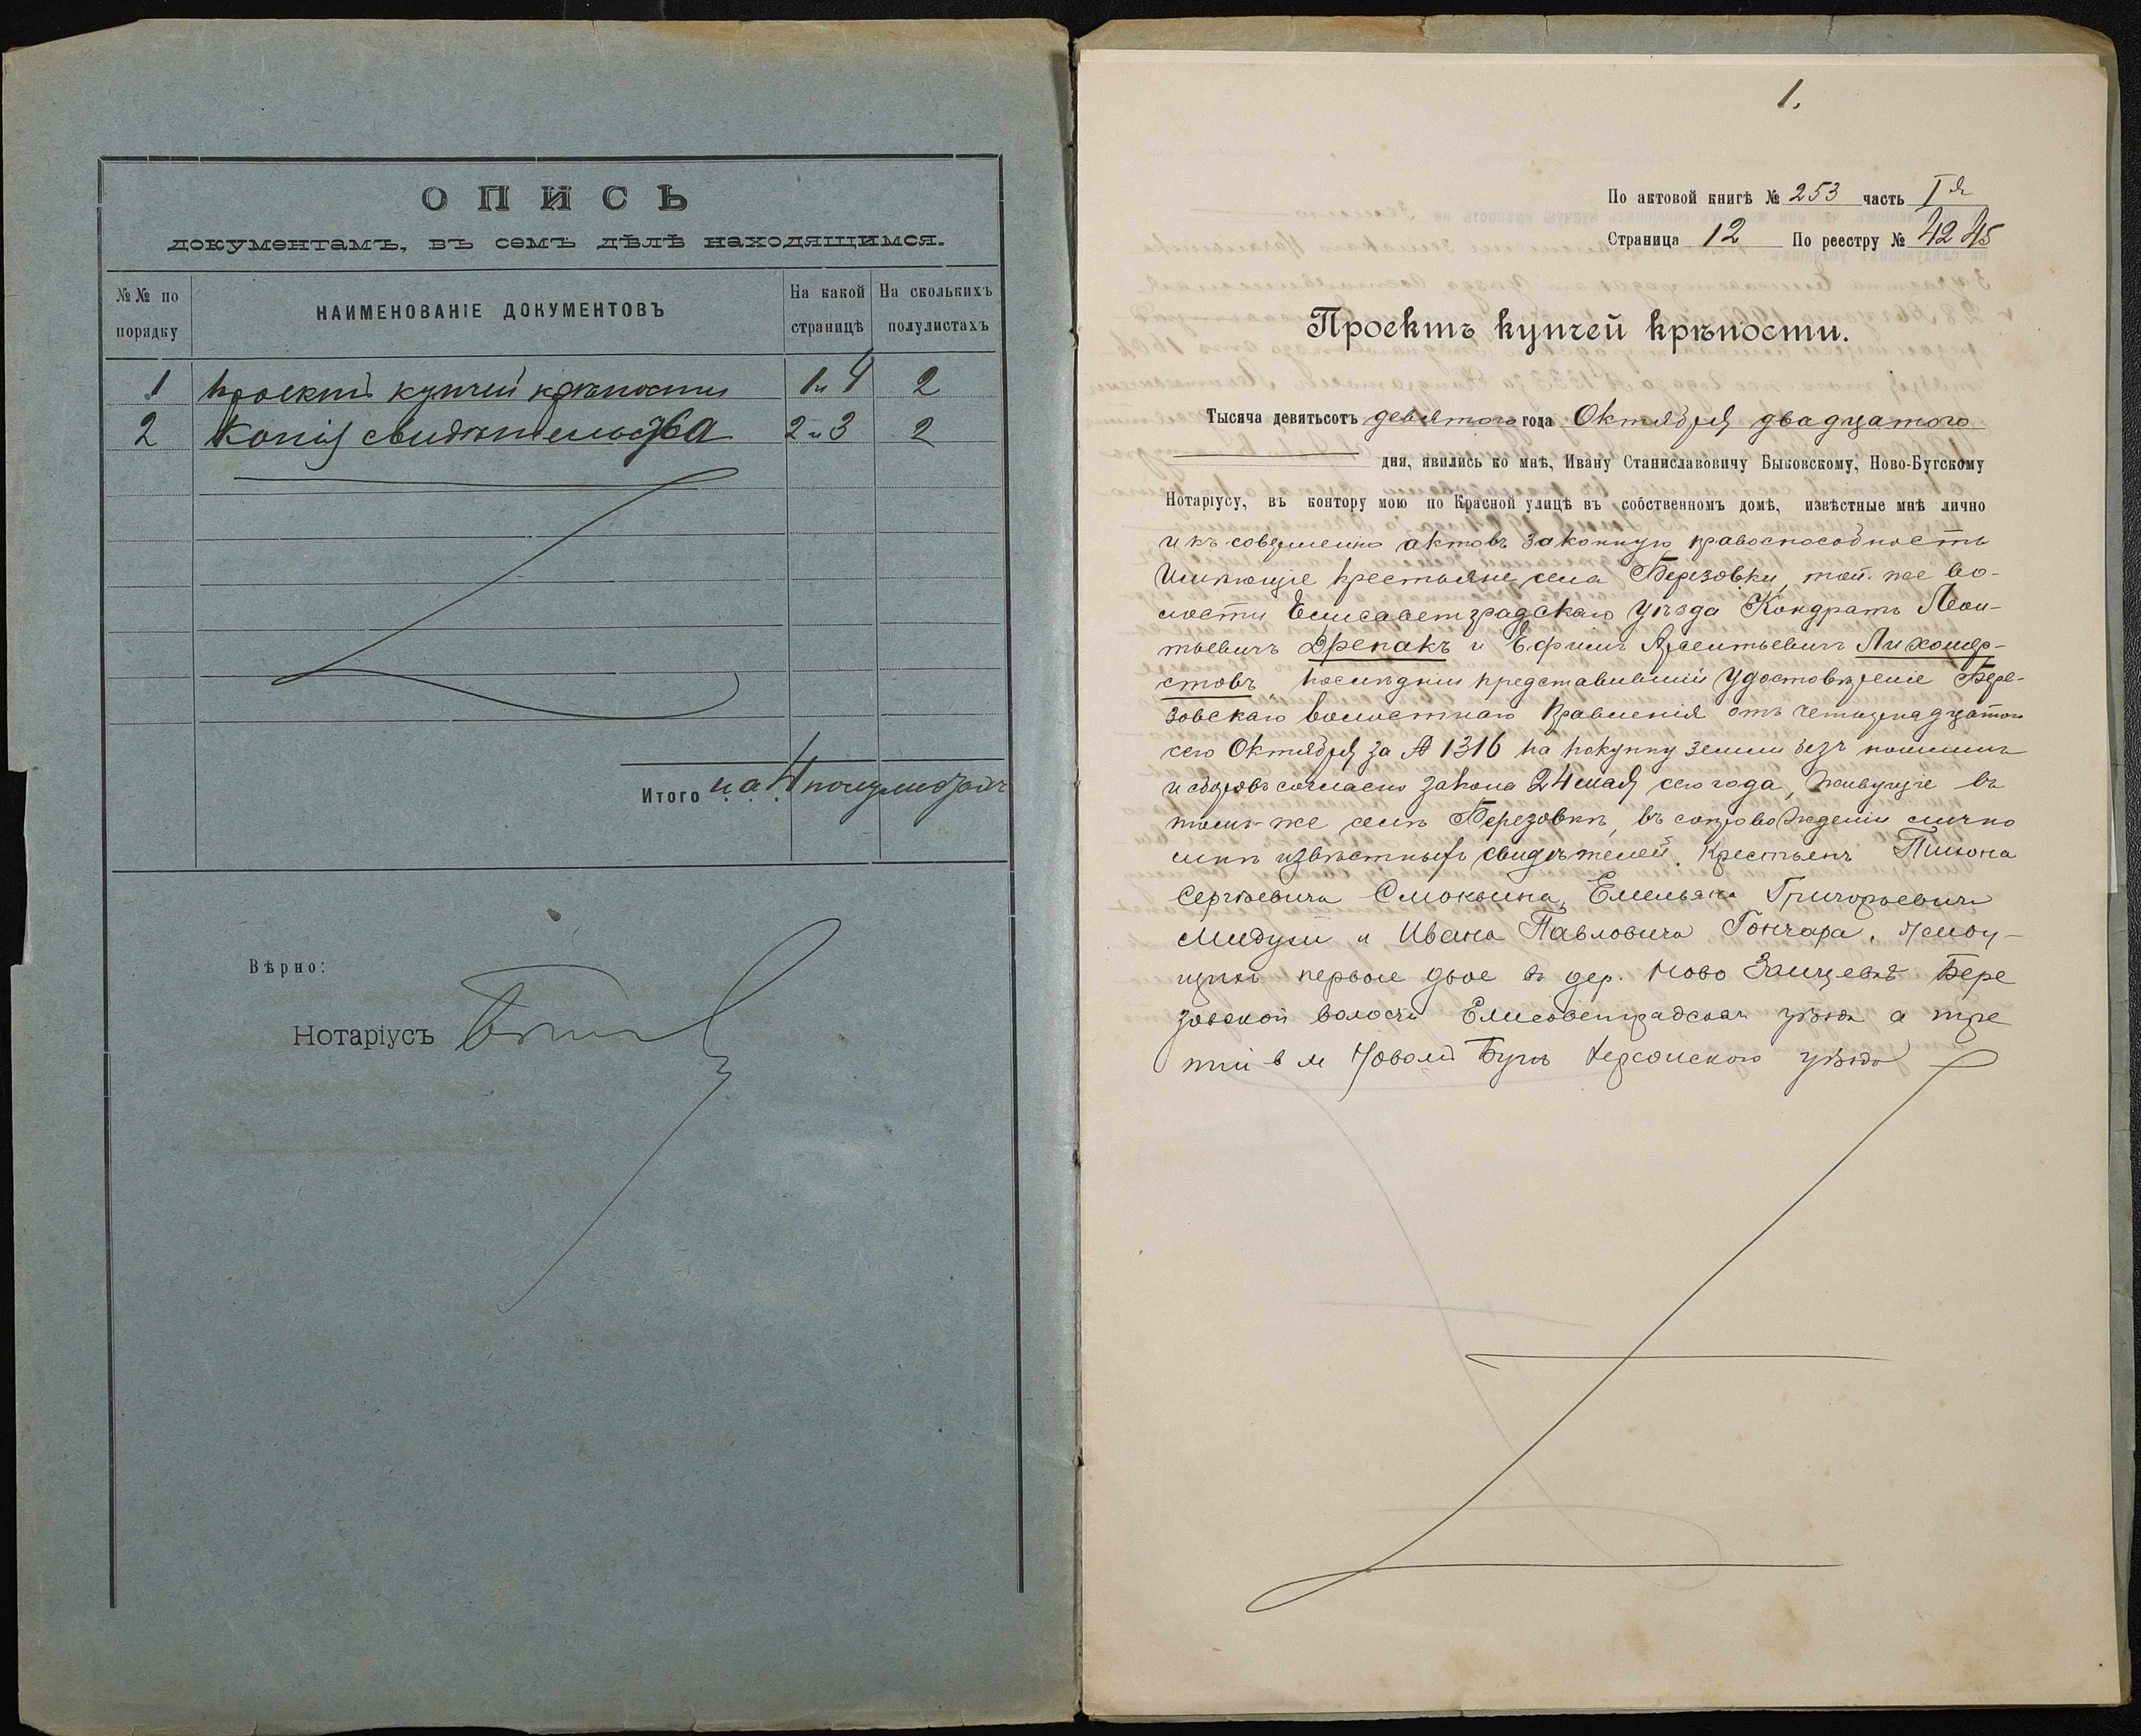 ОПИСЬ
документамъ, въ семъ дѣлѣ находящимся.
№№ по порядку
НАИМЕНОВАНІЕ ДОКУМЕНТОВЪ
На какой страницѣ
На сколькихъ полулистахъ
1 проектъ купчей крѣпости 1 и 4 2
2 Копія свидѣтельства 2 и 3 2
Итого на 4 полулистахъ
Вѣрно:
Нотаріусъ
1.
По актовой книгѣ № 253 часть Iя
Страница 12 По реестру № 4245
Проектъ купчей крѣпости.
Тысяча девятьсотъ девятого года Октября двадцатого
дня, явились ко мнѣ, Ивану Станиславовичу Быковскому, Ново-Бугскому
Нотаріусу, въ контору мою по Красной улицѣ въ собственномъ домѣ, извѣстные мнѣ лично
и къ совершенію актовъ законную правоспособность
имѣющіе крестьяне села Березовки, той-же во-
лости Елисаветградскаго уѣзда Кондратъ Леон-
тьевичъ Дрепакъ и Ефимъ Арсентьевичъ Лихошер-
стовъ, послѣдній представившій удостовѣреніе Бере-
зовскаго волостнаго Правленія отъ четырнадцатого
сего Октября за № 1316 на покупку земли безъ пошлинъ
и сборовъ согласно закона 24 мая сего года, живущіе въ
томъ-же селѣ Березовкѣ, въ сопровожденіи лично
мнѣ извѣстныхъ свидѣтелей: крестьянъ
Сергѣевича Смокина, Емельяна Григорьевича
и Ивана Павловича Гончара,
первые двое въ дер. Ново Зайцевкѣ Бере
зовской волости Елисаветградскаго уѣзда а тре
тій в м Новомъ Бугѣ Херсонского уѣзда